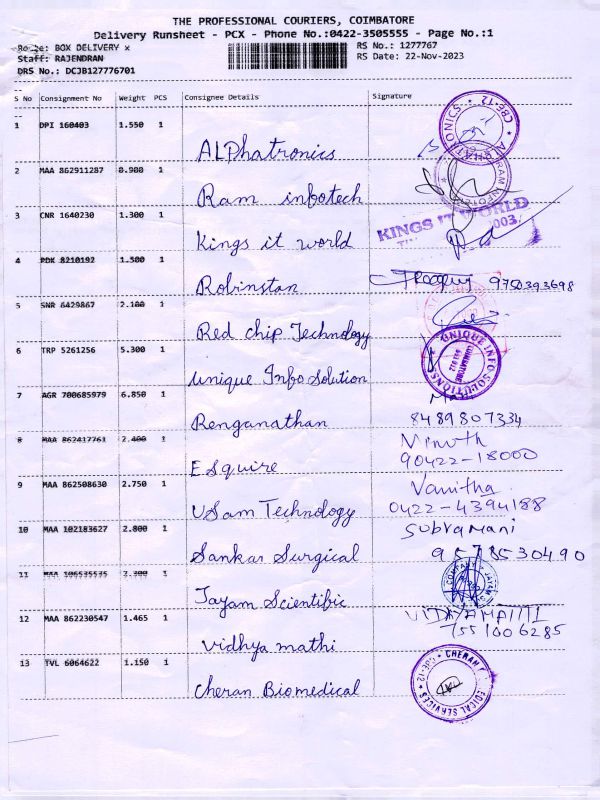 THE PROFESSIONAL COURIERS, COIMBATORE
Delivery Runsheet - PCX - Phone No.:0422-3505555 - Page No.:1
Route: BOX DELIVERY x
RS No.: 1277767
Staff: RAJENDRAN
RS Date: 22-Nov-2023
DRS No.: DCJB127776701
S No Consignment No Weight PCS Consignee Details Signature
1 DPI 160403 1.550 1
ALPhatronics
2 MAA 862911287 0.900 1
Ram infotech
3 CNR 1640230 1.300 1
KINGS IT WORLD
Kings it world
4 PDK 8210192 1.500 1
Robinstan
9750393698
5 SNR 6429867 2.100 1
Red chip Technology
6 TRP 5261256 5.300 1
UNIQUE INFO SOLUTIONS
Unique Info Solution
7 AGR 700685979 6.850 1
Renganathan
8489807334
8 MAA 862417761 2.400 1
Vinuth
90422-18000
Esquire
9 MAA 862508630 2.750 1
Vanitha
0422-4394188
USam Technology
10 MAA 102183627 2.800 1
Subramani
Sankar Surgical
9578530490
11 2.300 1
Jayam Scientific
12 MAA 862230547 1.465 1
7551006285
Vidhya mathi
13 TVL 6064622 1.150 1
Cheran Biomedical